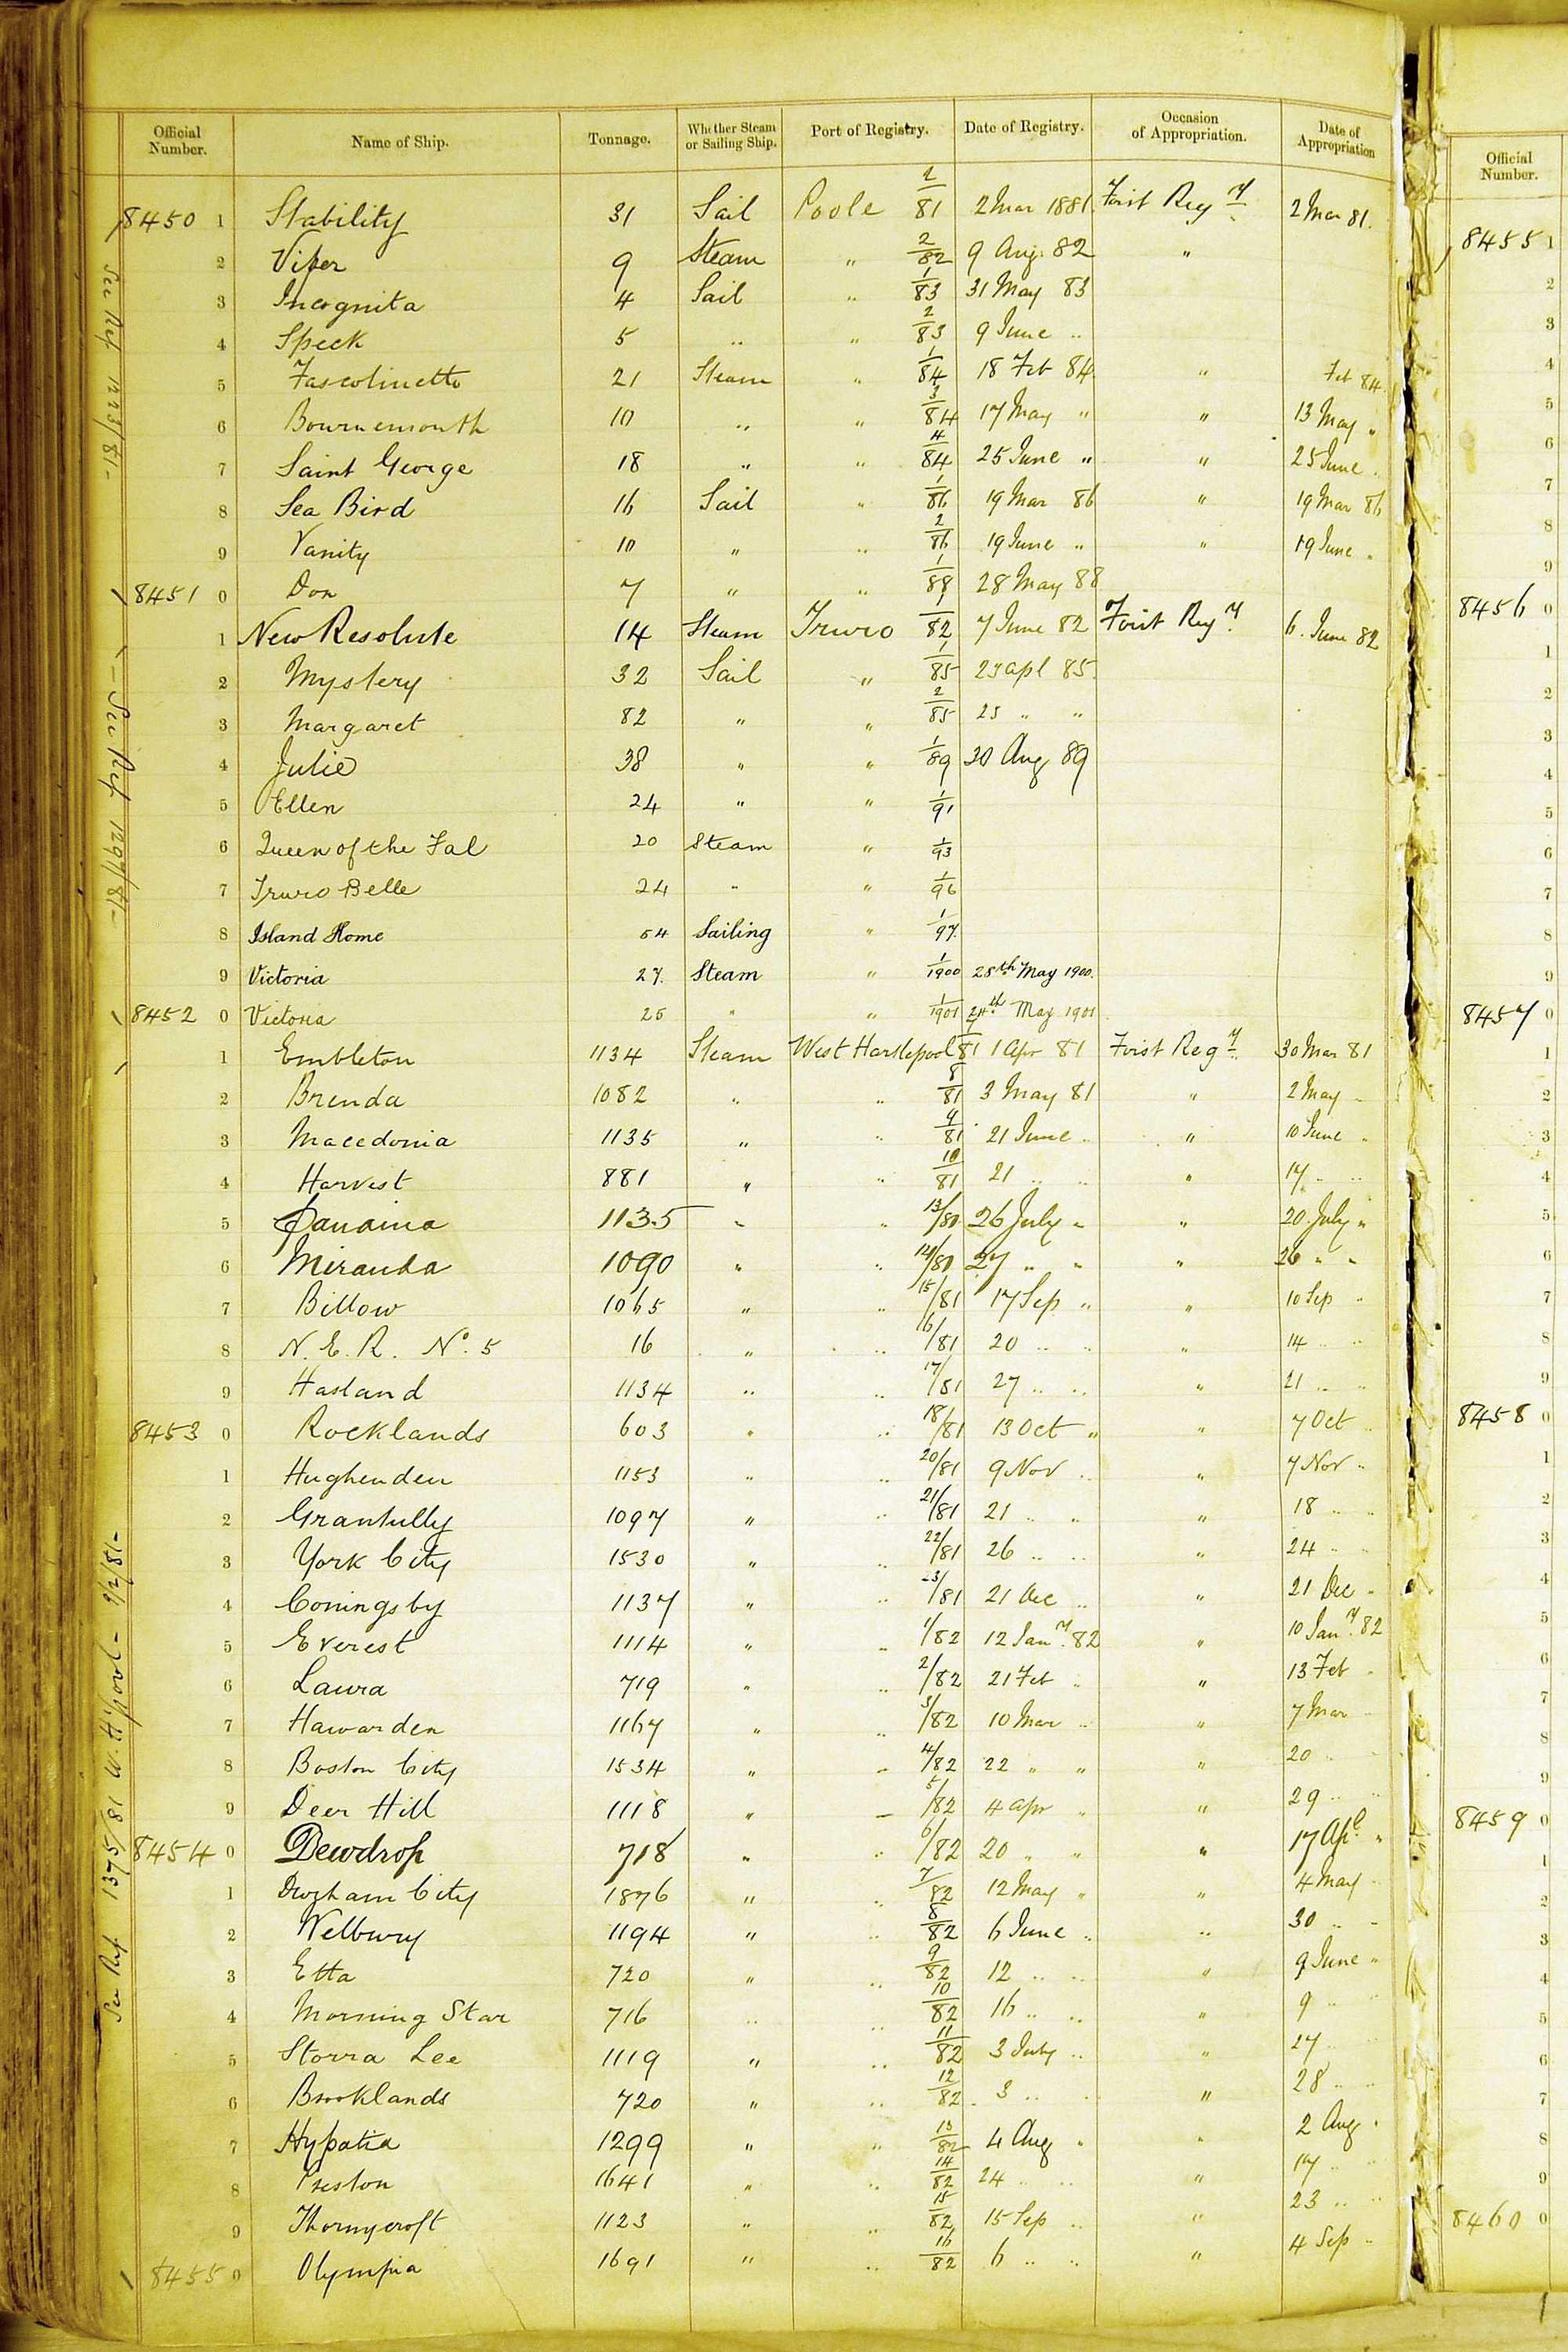 Official Number. Name of Ship. Tonnage. Whether Steam or Sailing Ship. Port of Registry. Date of Registry. Occasion of Appropriation. Date of Appropriation
8450 1 Stability 31 Sail Poole 81 2 Mar 1881. First Regy 2 Mar 81.
2 Viper 9 Steam " 2/82 9 Aug. 82 "
3 Incognita 4 Sail " 1/83 31 May 83
4 Speck 5 " " 2/83 9 June "
5 21 Steam " 1/84 18 Feb 84 " Feb 84
6 Bournemouth 10 " " 3/84 17 May " " 13 May "
7 Saint George 18 " " 4/84 25 June " " 25 June "
8 Sea Bird 16 Sail " 1/86 19 Mar 86 " 19 Mar 86
9 Vanity 10 " " 2/86 19 June " " 19 June "
8451 0 Don 7 " " 1/88 28 May 88
1 New Resolute 14 Steam Truro 1/82 7 June 82 First Regy 6. June 82
2 Mystery 32 Sail " 1/85 apl 85.
3 Margaret 82 " " 2/85 " "
4 Julie 38 " " 1/89 Aug 89
5 Ellen 24 " " 1/91
6 Queen of the Fal 20 Steam " 1/93
7 Truro Belle 24 " " 1/96
8 Island Home 54 Sailing " 1/97.
9 Victoria 27. Steam " 1/1900 28th May 1900.
8452 0 Victoria 25 " " 1/1901 May 1901
1 Embleton 1134 Steam West Hartlepool 81 1 Apr 81 First Regy 30 Mar 81
2 Brenda 1082 " " 8/81 3 May 81 " 2 May "
3 Macedonia 1135 " " 9/81 21 June " " 10 June "
4 Harvest 881 " " 10/81 21 " " " 17 " "
5 Panama 1135 " " 13/80 26 July " " 20 July "
6 Miranda 1090 " " 14/80 27 " " " 26 " "
7 Billow 1065 " " 15/81 17 Sep " " 10 Sep "
8 N. E. R. No. 5 16 " " 16/81 20 " " " 14 " "
9 Hasland 1134 " " 17/81 27 " " " 21 " "
8453 0 Rocklands 603 " " 18/81 13 Oct " " 7 Oct "
1 Hughenden 1153 " " 20/81 9 Nov " " 7 Nov "
2 Grantully 1097 " " 21/81 21 " " " 18 " "
3 York City 1530 " " 22/81 26 " " " 24 " "
4 Coningsby 1137 " " 23/81 21 Dec " " 21 Dec "
5 Everest 1114 " " 1/82 12 Jany. 82 " 10 Jany. 82
6 Laura 719 " " 2/82 21 Feb " " 13 Feb "
7 Hawarden 1167 " " 3/82 10 Mar " " 7 Mar "
8 Boston City 1534 " " 4/82 22 " " " 20 " "
9 Deer Hill 1118 " " 5/82 4 Apr " " 29 " "
8454 0 Dewdrop 718 " " 6/82 20 " " " 17 Apl. "
1 Durham City 1876 " " 7/82 12 May " " 4 May "
2 Welbury 1194 " " 8/82 6 June " " 30 " "
3 Etta 720 " " 9/82 12 " " " 9 June "
4 Morning Star 716 " " 10/82 16 " " " 9 " "
5 Storra Lee 1119 " " 11/82 3 July " " 27 " "
6 Brooklands 720 " " 12/82 3 " " " 28 " "
7 Hypatia 1299 " " 13/82 4 Aug " " 2 Aug "
8 Preston 1641 " " 14/82 24 " " " 17 " "
9 Thornycroft 1123 " " 15/82 15 Sep " " 23 " "
8455 0 Olympia 1691 " " 16/82 6 " " " 4 Sep "
See Ref 1223/81-
See Ref 1297/81-
See Ref 1375/81 W. H'pool - 9/2/81-
Official Number.
8455 1
2
3
4
5
6
7
8
9
8456 0
1
2
3
4
5
6
7
8
9
8457 0
1
2
3
4
5
6
7
8
9
8458 0
1
2
3
4
5
6
7
8
9
8459 0
1
2
3
4
5
6
7
8
9
8460 0